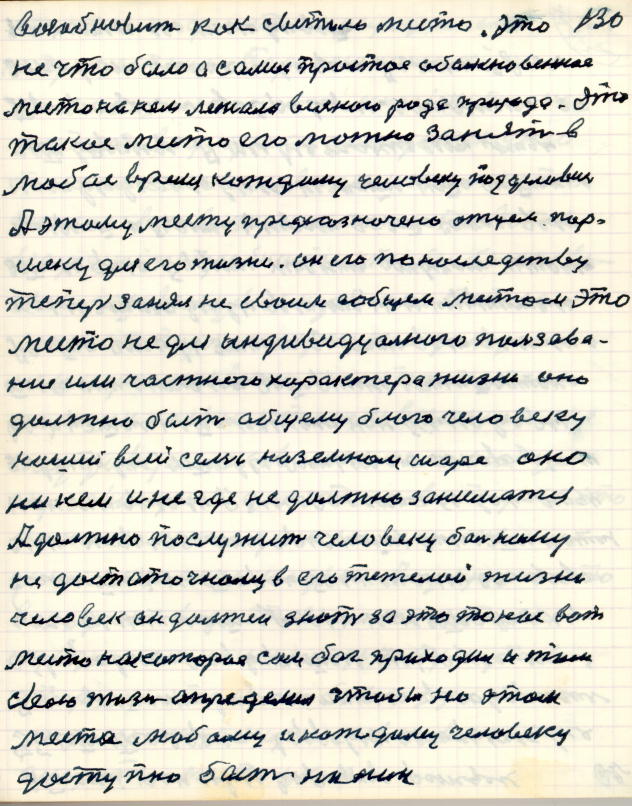 возобновит как светило место. Это 130
не что было а самое простое обыкновенное
место на нем лежала всякого рода природа. Это
такое место его можно занять в
любое время каждому человеку под условия
А этому месту предназначено отцем пар-
шеку для его жизни. он его по наследству
тепер занял не своим а общем местом это
место не для индивидуалного ползава-
ние или частного характера жизни оно
должно быть общему благо человеку
нашей всей семьи на земном шаре оно
ни кем и не где не должно заниматся
А должно послужит человеку болному
не достаточному в его тежелой жизни
человек он должен знать за это токое вот
место на которое сам бог приходил и там
свою жизн определил чтобы на этом
места любому и каждому человеку
доступно быть на ним